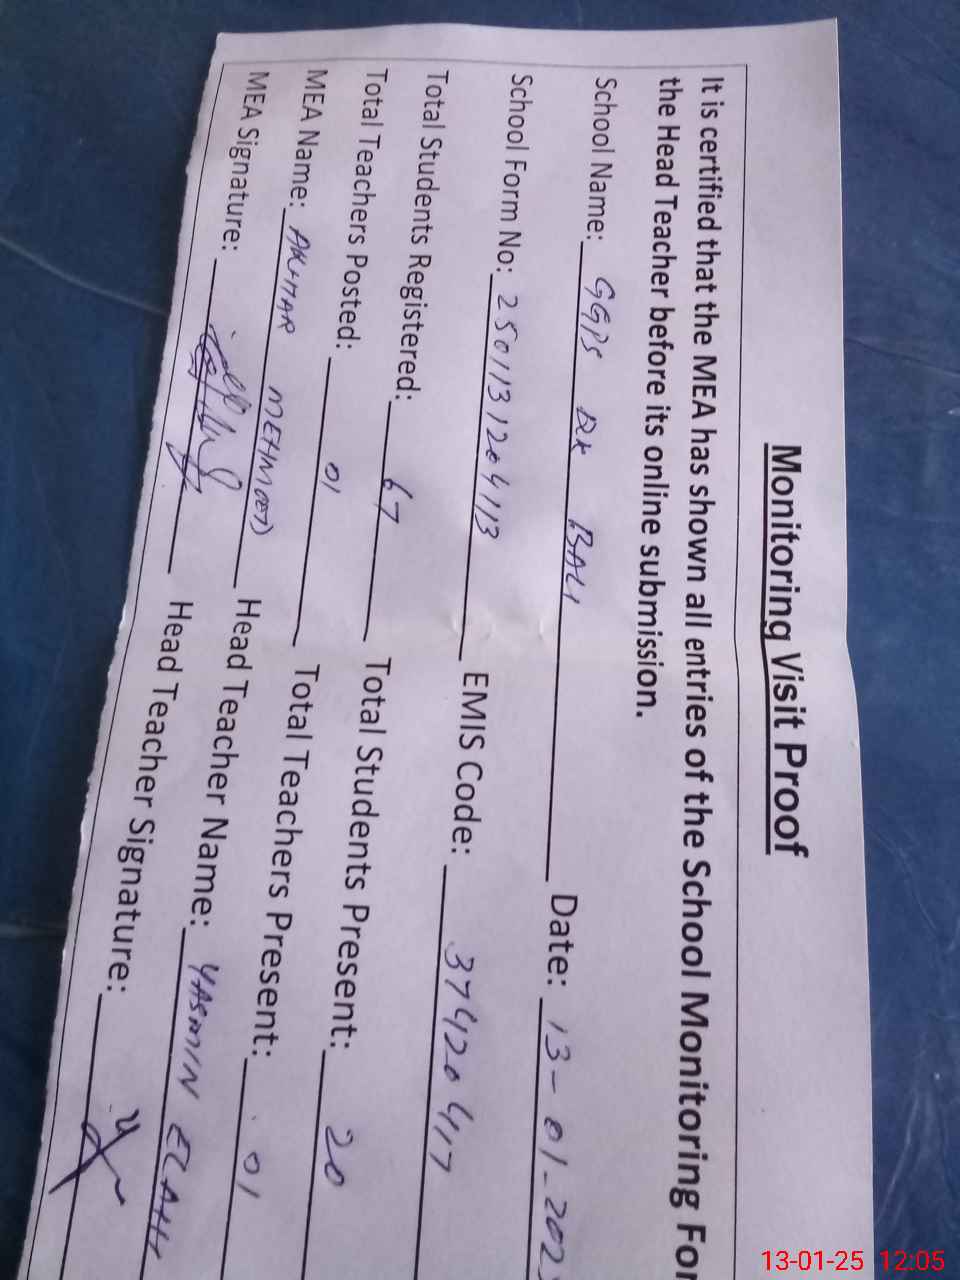 Monitoring Visit Proof
It is certified that the MEA has shown all entries of the School Monitoring For
the Head Teacher before its online submission.
School Name: GGPS DK BALI Date: 13-01-202
School Form No: 2501131204113 EMIS Code: 37420417
Total Students Registered: 67 Total Students Present: 20
Total Teachers Posted: 01 Total Teachers Present: 01
MEA Name: AKHTAR MEHMOOD Head Teacher Name: YASMIN ELAHI
MEA Signature: Head Teacher Signature:
13-01-25 12:05